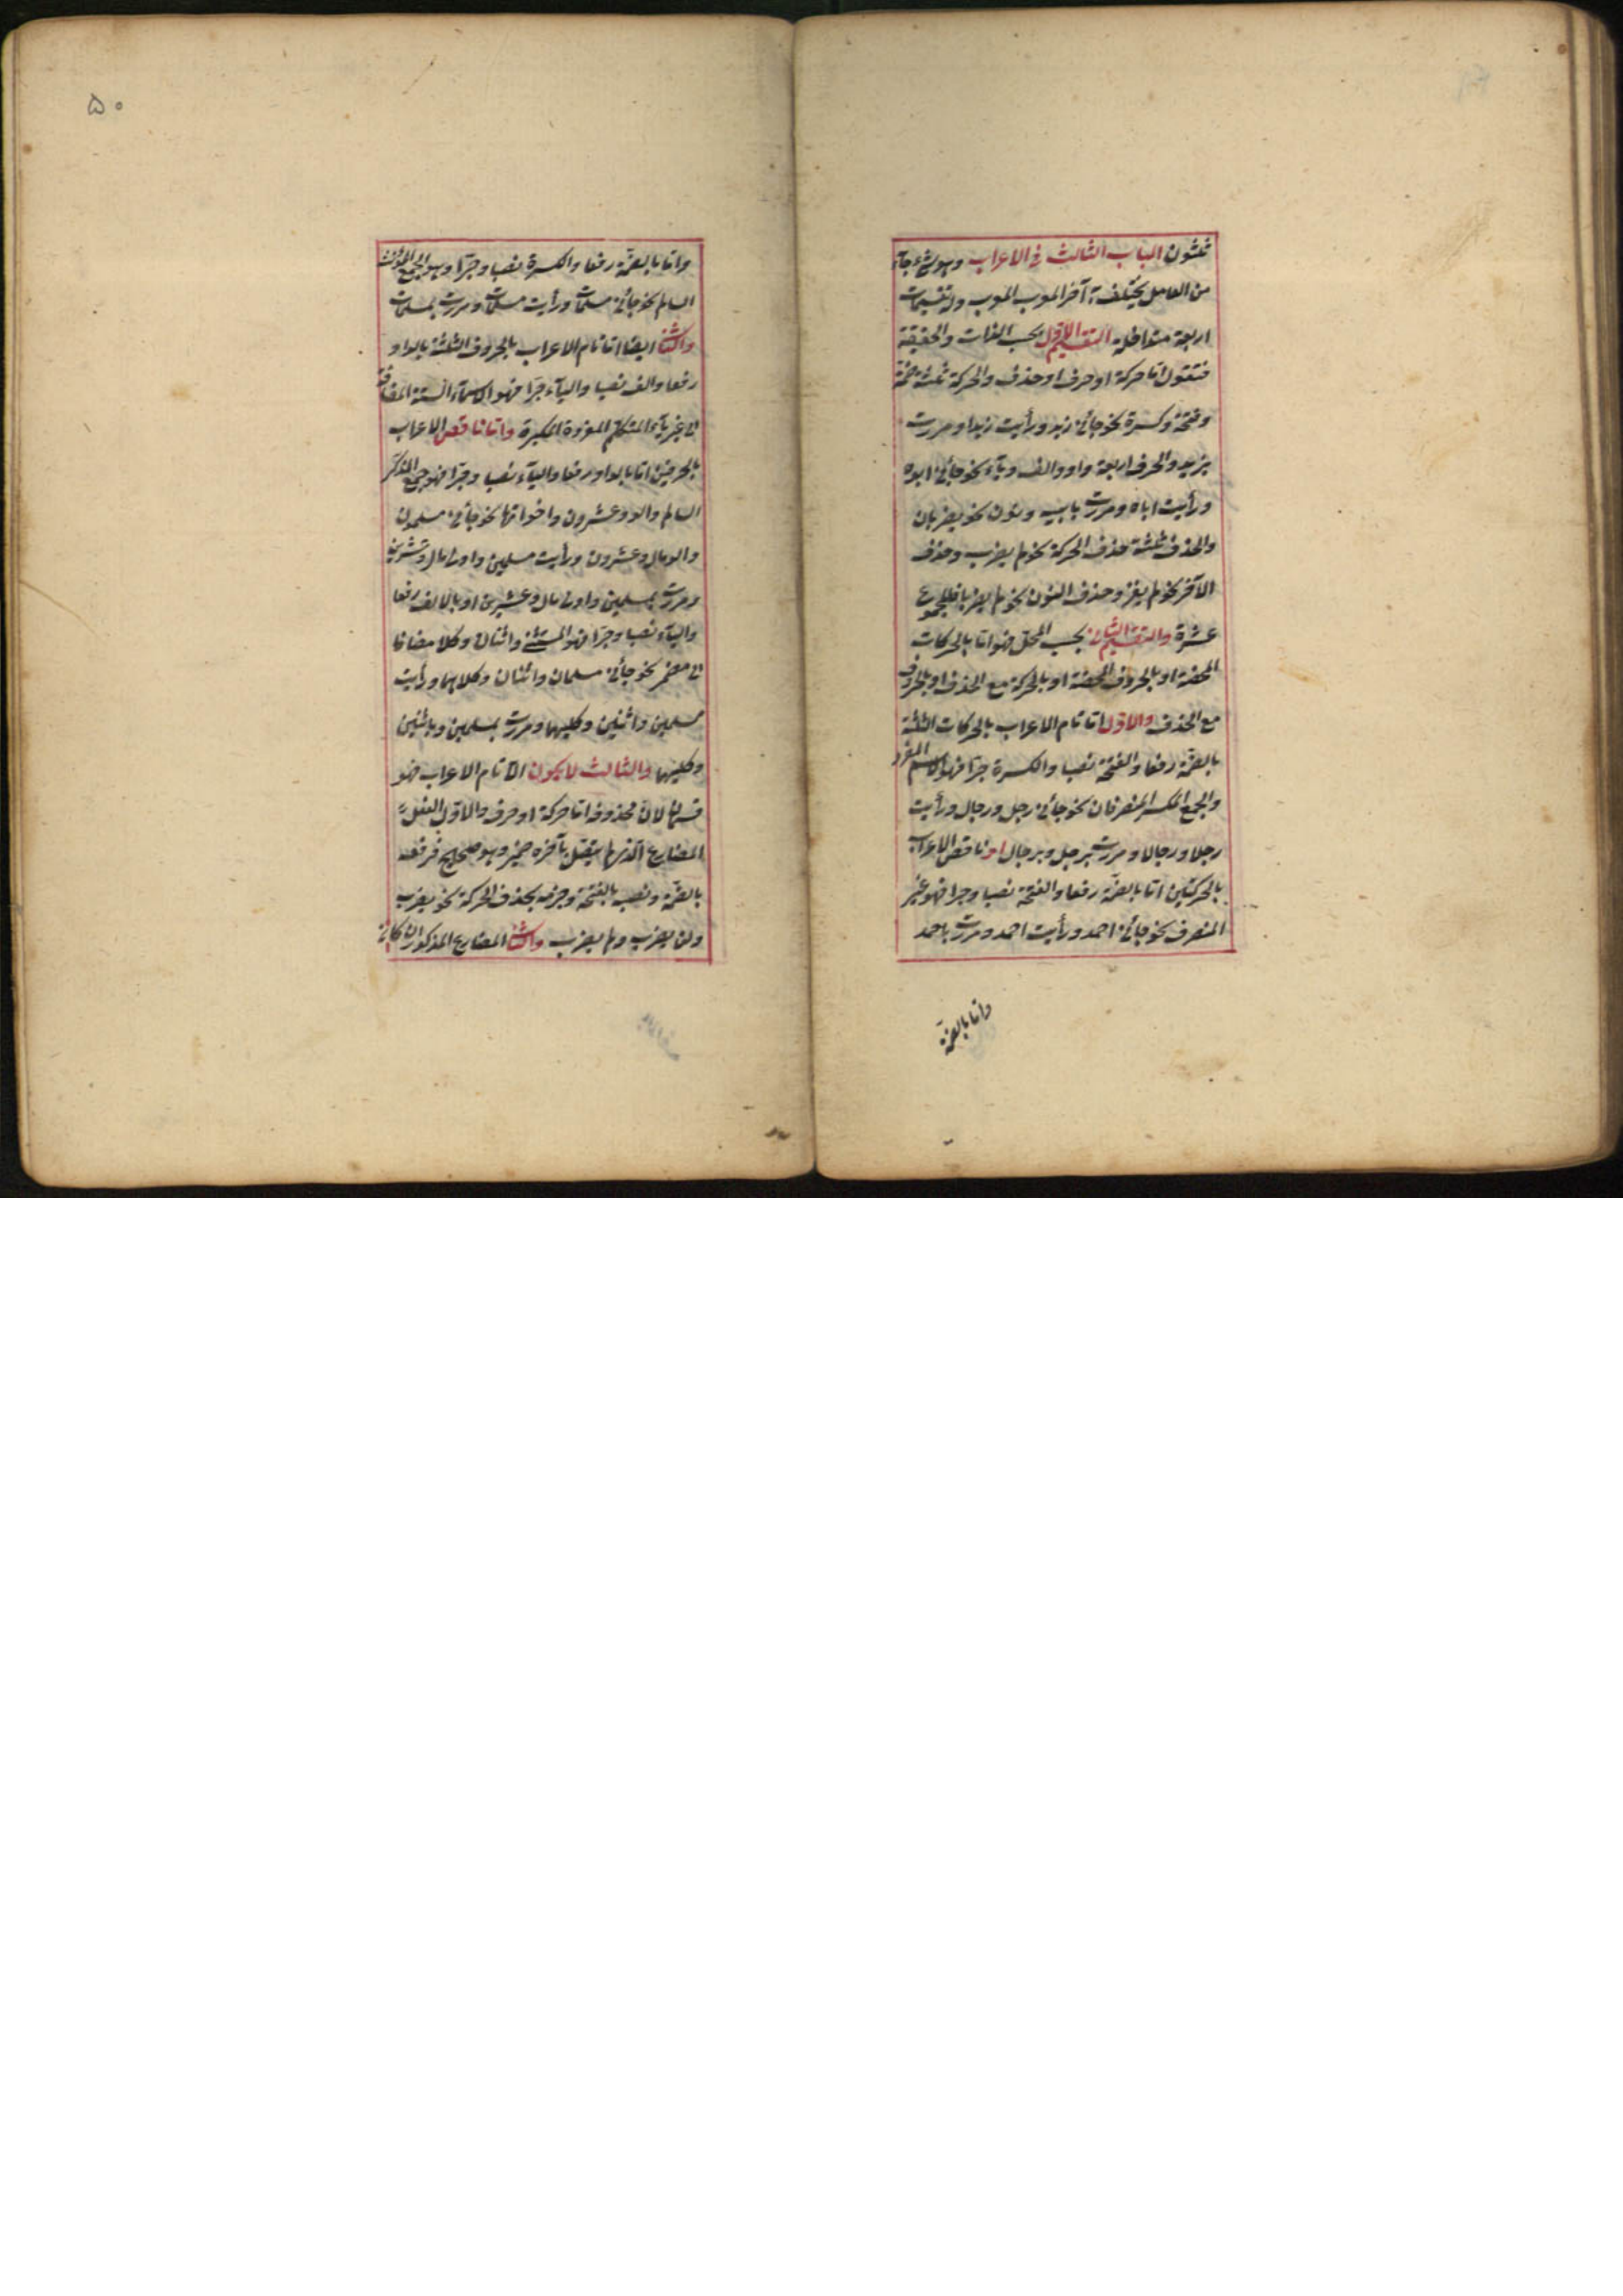 ثلثون الباب الثالث فى الاعراب وهو شئ جآء
من العامل يختلف به آخر المعرب المعرب وله تقسيمات
اربعة متداخلة التقسيم الاول بحسب الذات والحقيقة
فنقول اما حركة او حرف او حذف والحركة ثلثة ضمة
وفتحة وكسرة نحو جائنى زيد ورأيت زيدا ومررت
بزيد والحرف اربعة واو والف ويآء نحو جائنى ابوه
ورأيت اباه ومررت بابيه ونون نحو يضربان
والحذف ثلثة حذف الحركة نحو لم يضرب وحذف
الآخر نحو لم يغز وحذف النون نحو لم يضربا فالمجموع
عشرة والتقسيم الثانى بحسب المحل فهو اما بالحركات
المحضة او بالحروف المحضة او بالحركة مع الحذف او بالحروف
مع الحذف والاول اما تام الاعراب بالحركات الثلثة
بالضمة رفعا والفتحة نصبا والكسرة جرا فهو الاسم المفرد
والجمع المكسر المنصرفان نحو جائنى رجل ورجال ورأيت
رجلا ورجالا ومررت برجل وبرجال او ناقص الاعراب
بالحركتين اما بالضمة رفعا والفتحة نصبا وجرا فهو غير
المنصرف نحو جائنى احمد ورأيت احمد ومررت باحمد
واما بالضمة
۵۰
واما بالضمة رفعا والكسرة نصبا وجرا وهو الجمع المؤنث
السالم نحو جائنى مسلمات ورأيت مسلمات ومررت بمسلمات
والثانى ايضا اما تام الاعراب بالحروف الثلثة بالواو
رفعا والف نصبا واليآء جرا فهو الاسمآء الستة المضافة
الى غير يآء المتكلم المفردة المكبرة واما ناقص الاعراب
بالحرفين اما بالواو رفعا واليآء نصبا وجرا فهو جمع المذكر
السالم والو وعشرون واخواتها نحو جائنى مسلمون
والو مال وعشرون ورأيت مسلمين واولى مال وعشرين
ومررت بمسلمين واولى مال وعشرين او بالالف رفعا
واليآء نصبا وجرا فهو المثنى واثنان وكلا مضافا
الى مضمر نحو جائنى مسلمان واثنان وكلاهما ورأيت
مسلمين واثنين وكليهما ومررت بمسلمين وباثنين
وكليهما والثالث لا يكون الا تام الاعراب فهو
قسمان لان محذوفه اما حركة او حرف والاول الفعل
المضارع الذى لم يتصل بآخره ضمير وهو صحيح فرفعه
بالضمة ونصبه بالفتحة وجزمه بحذف الحركة نحو يضرب
ولن يضرب ولم يضرب والثانى المضارع المذكور ان كان